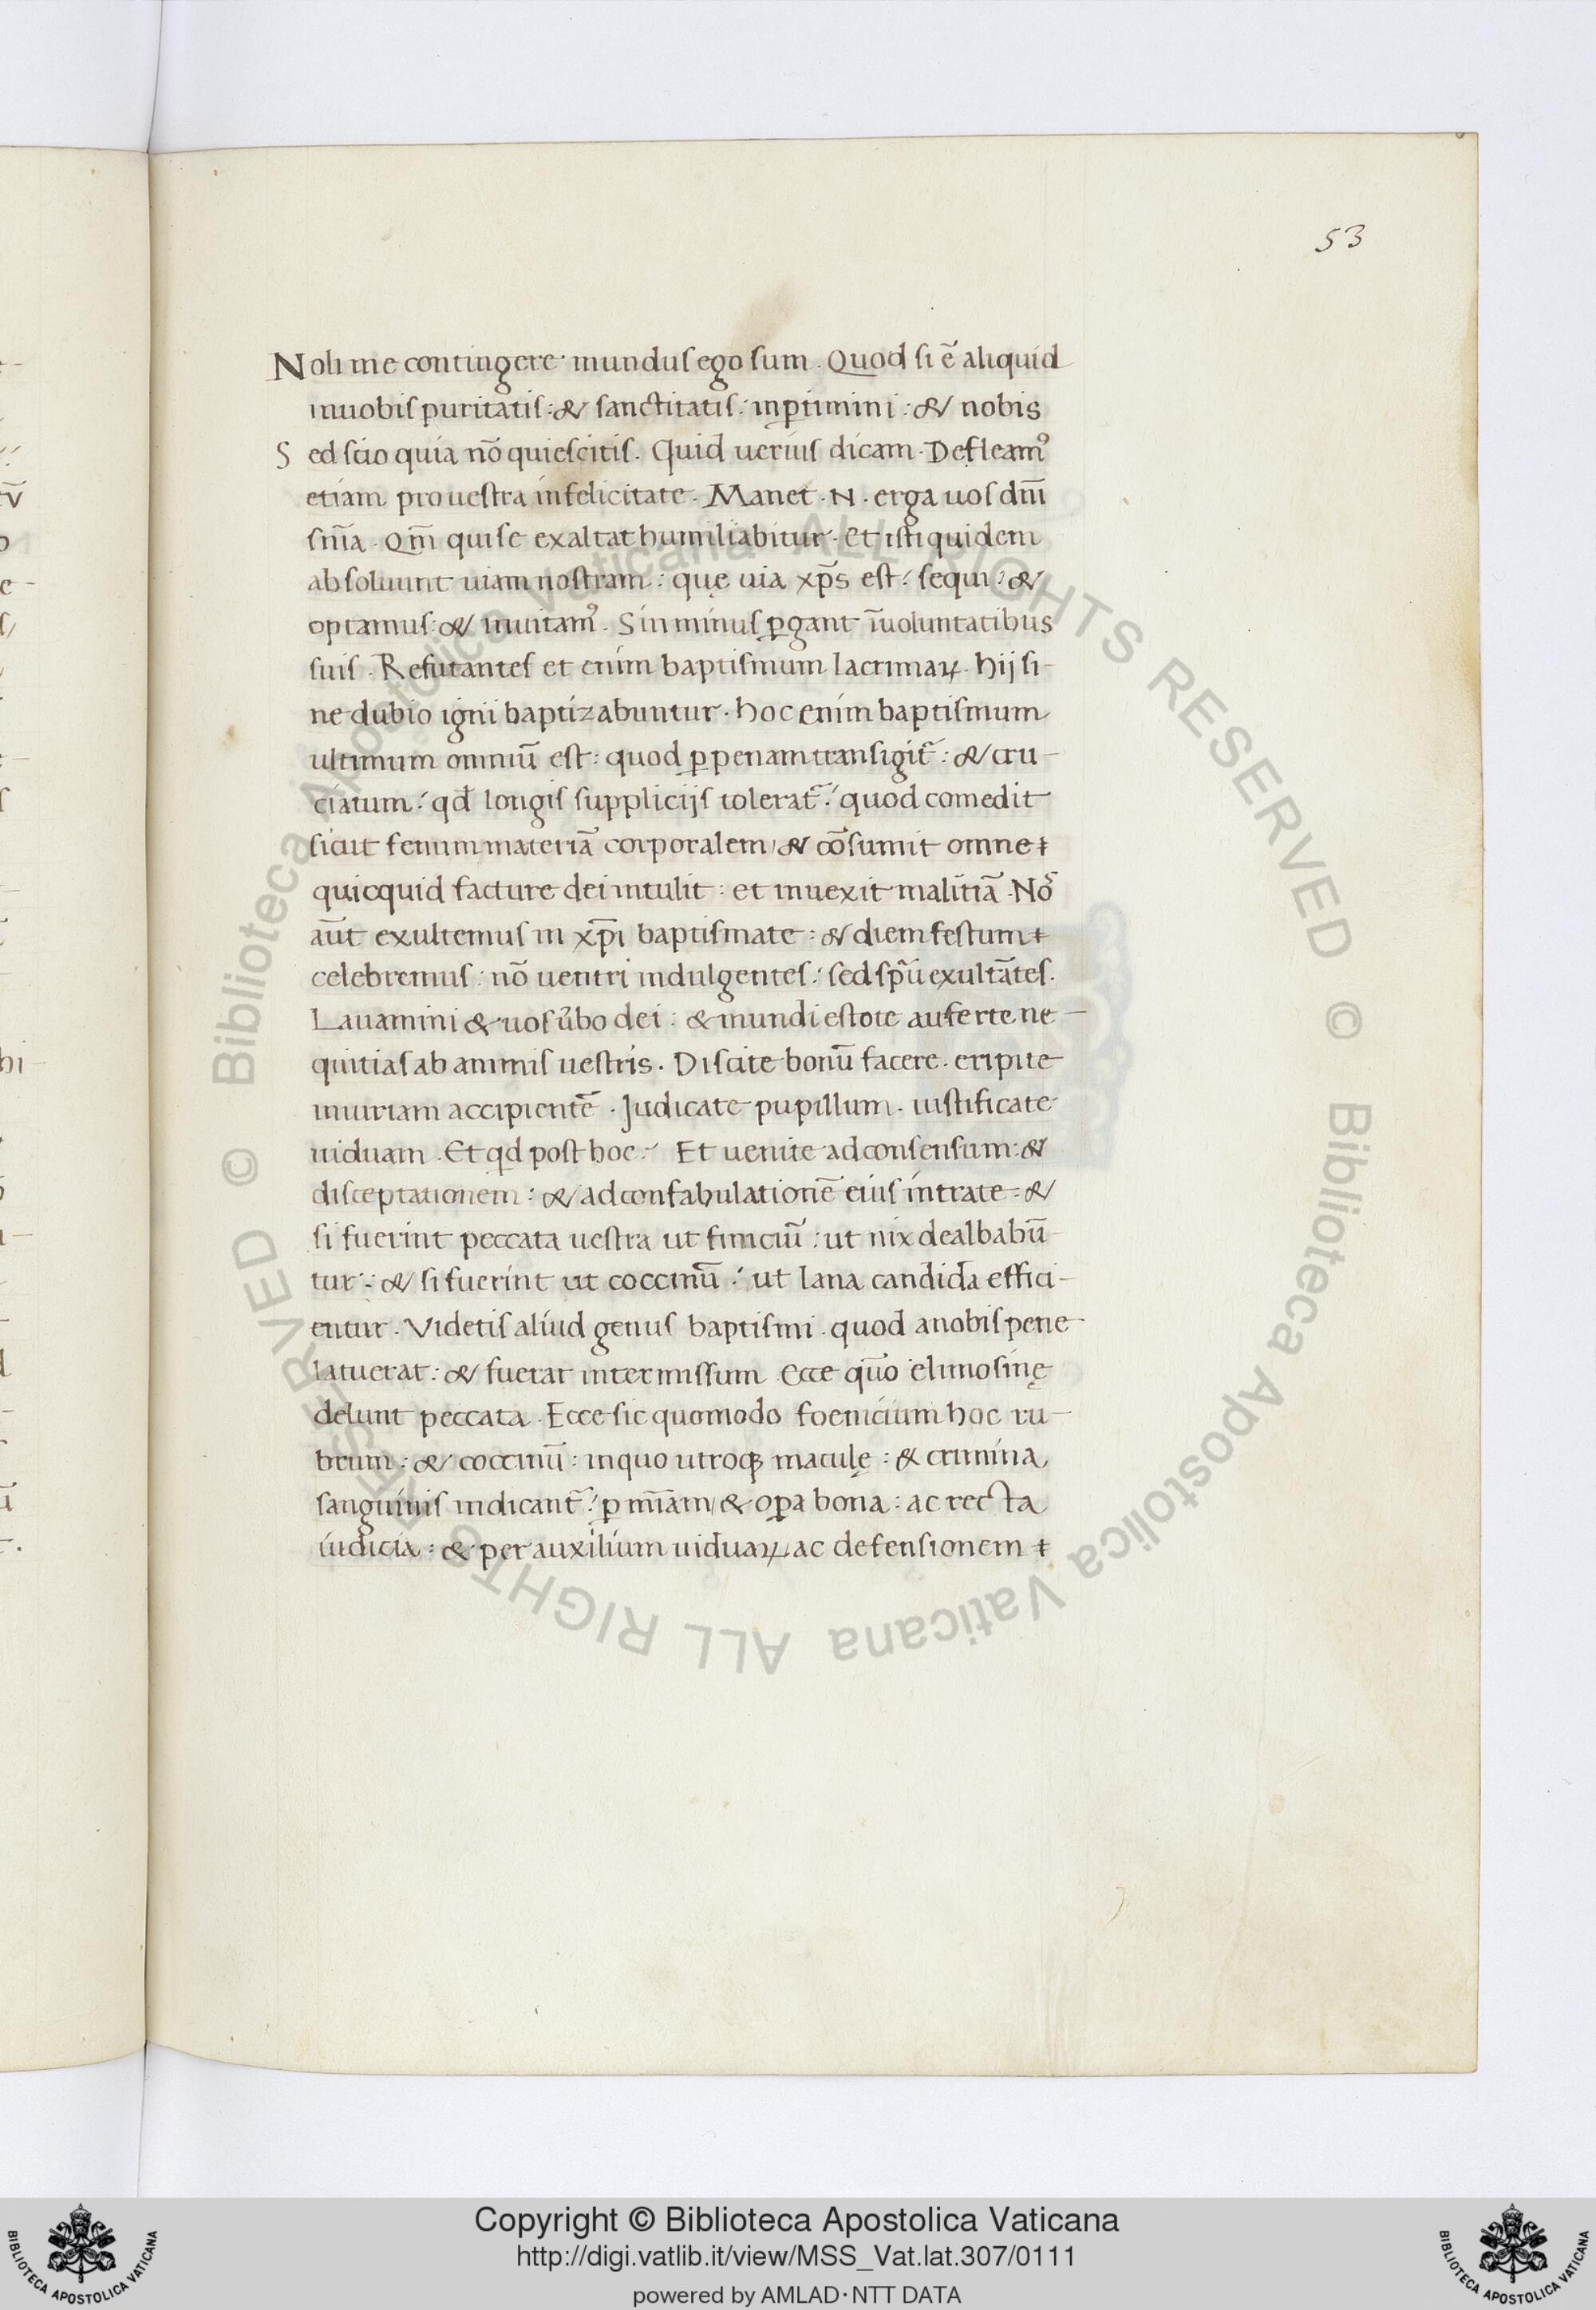 53
Noli me contingere· mundus ego sum. Quod si ē aliquid
inuobis puritatis: & sanctitatis: inꝑtimini: & nobis
Sed scio quia nō quiescitis. Quid uerius dicam. Defleamꝰ
etiam pro uestra infelicitate. Manet .N. erga uos dn̄i
sn̄ia. Qm̄ qui se exaltat humiliabitur. Et isti quidem
absoluunt uiam nostram: quę uia xp̄s est: sequi: &
optamus: & inuitamꝰ. Sin minus ꝑgant ī uoluntatibus
suis. Refutantes et enim baptismum lacrimaꝝ. hij si-
ne dubio igni baptizabuntur. hoc enim baptismum
ultimum omniū est: quod ꝑ penam transigit᷑: & cru-
ciatum: qd̄ longis supplicijs tolerat᷑: quod comedit
sicut fenum materiā corporalem, & cōsumit omne
quicquid facture dei intulit: et inuexit malitiā. Nos
aūt exultemus in xp̄i baptismate: & diem festum
celebremus: nō uentri indulgentes: sed sp̄u exultātes.
Lauamini & uos ūbo dei: & mundi estote auferte ne-
quitias ab animis uestris. Discite bonū facere. eripite
iniuriam accipientē. Judicate pupillum. iustificate
uiduam. Et qd post hoc: Et uenite ad consensum: &
disceptationem: & ad confabulationē eius intrate: &
si fuerint peccata uestra ut finiciū: ut nix dealbabū-
tur: & si fuerint ut coccinū: ut lana candida effici-
entur. Videtis aliud genus baptismi. quod anobis pene
latuerat: & fuerat intermissum. Ecce qūo elimosinę
delunt peccata. Ecce sic quomodo foenicium hoc ru-
brum: & coccinū: inquo utroqꝫ maculę: & crimina
sanguinis indicant᷑: ꝑ mīam, & oꝑa bona: ac recta
iudicia: & per auxilium uiduaꝝ ac defensionem
© Biblioteca Apostolica Vaticana ALL RIGHTS RESERVED © Biblioteca Apostolica Vaticana ALL RIGHTS RESERVED
Copyright © Biblioteca Apostolica Vaticana
http://digi.vatlib.it/view/MSS_Vat.lat.307/0111
powered by AMLAD·NTT DATA
BIBLIOTECA APOSTOLICA VATICANA
BIBLIOTECA APOSTOLICA VATICANA